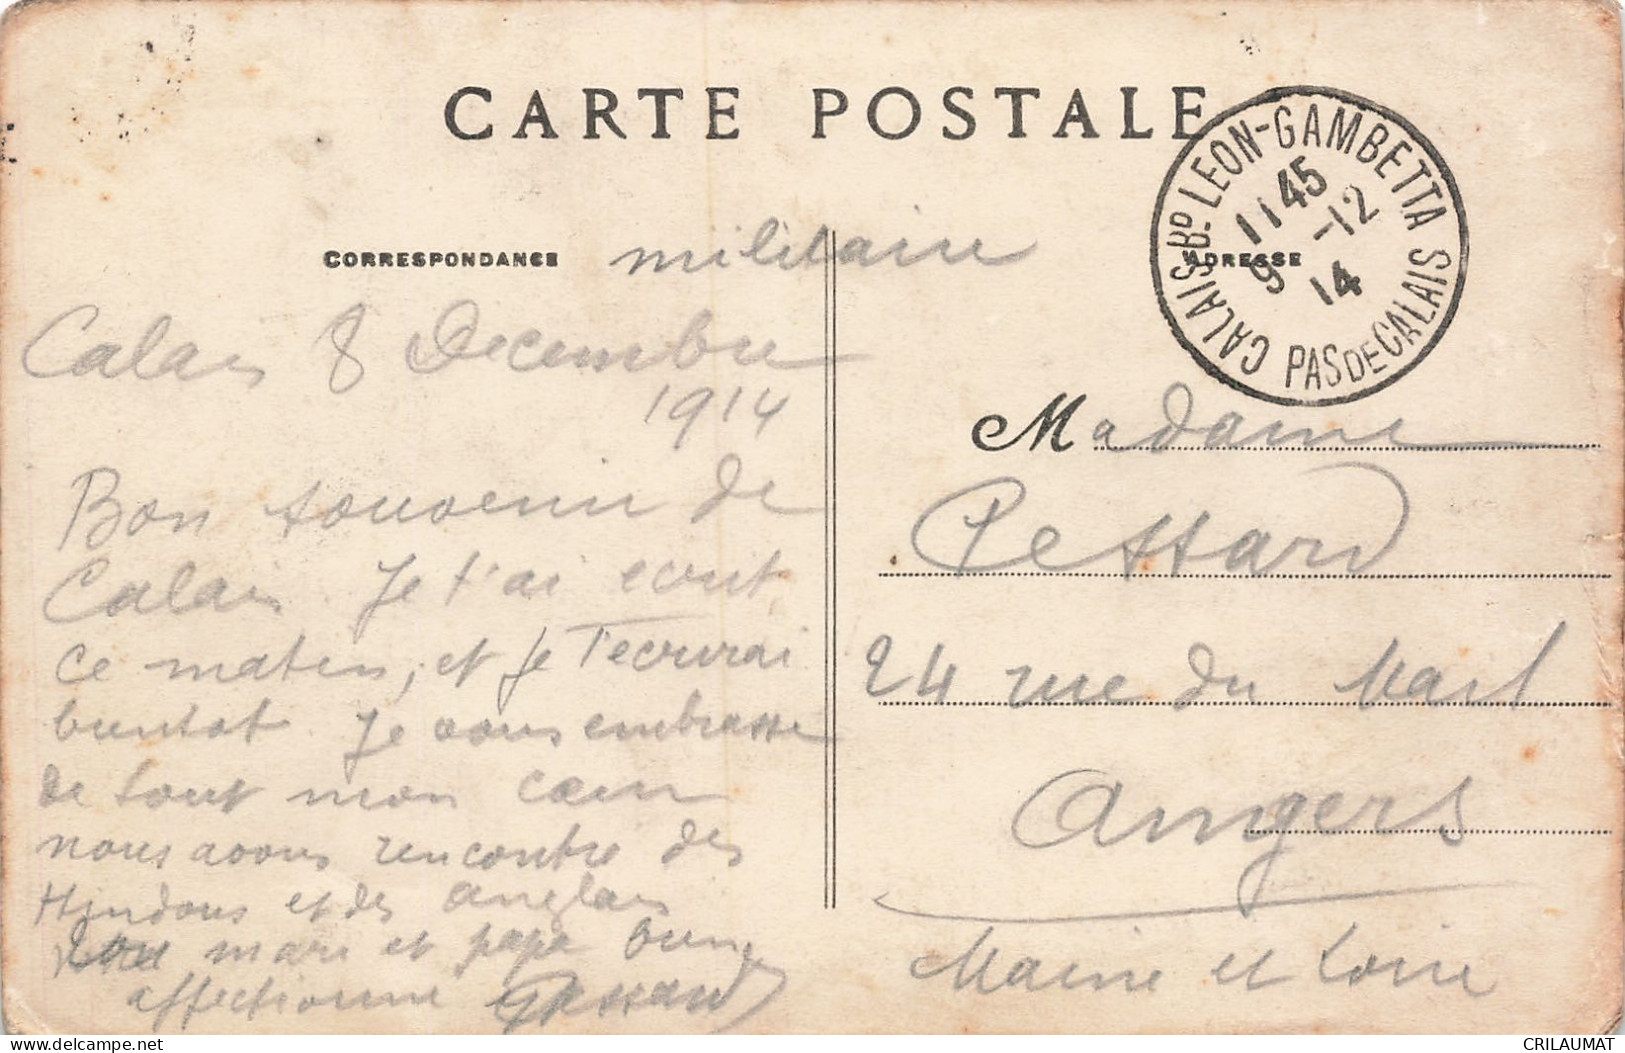 CARTE POSTALE
CALAIS Bᴰ LEON-GAMBETTA
11 45
9 -12
14
PAS DE CALAIS
CORRESPONDANCE
militaire
ADRESSE
Calais 8 Decembre
1914
Bon souvenir de
Calais. Je t'ai ecrit
ce matin, et je t'ecrirai
bientot. Je vous embrasse
de tout mon cœur
nous avons rencontre des
Hindous et des anglais
mari et papa bien
affectionné Pessard
Madame
Pessard
24 rue du Mail
Angers
Maine et Loire
delcampe.net
CRILAUMAT